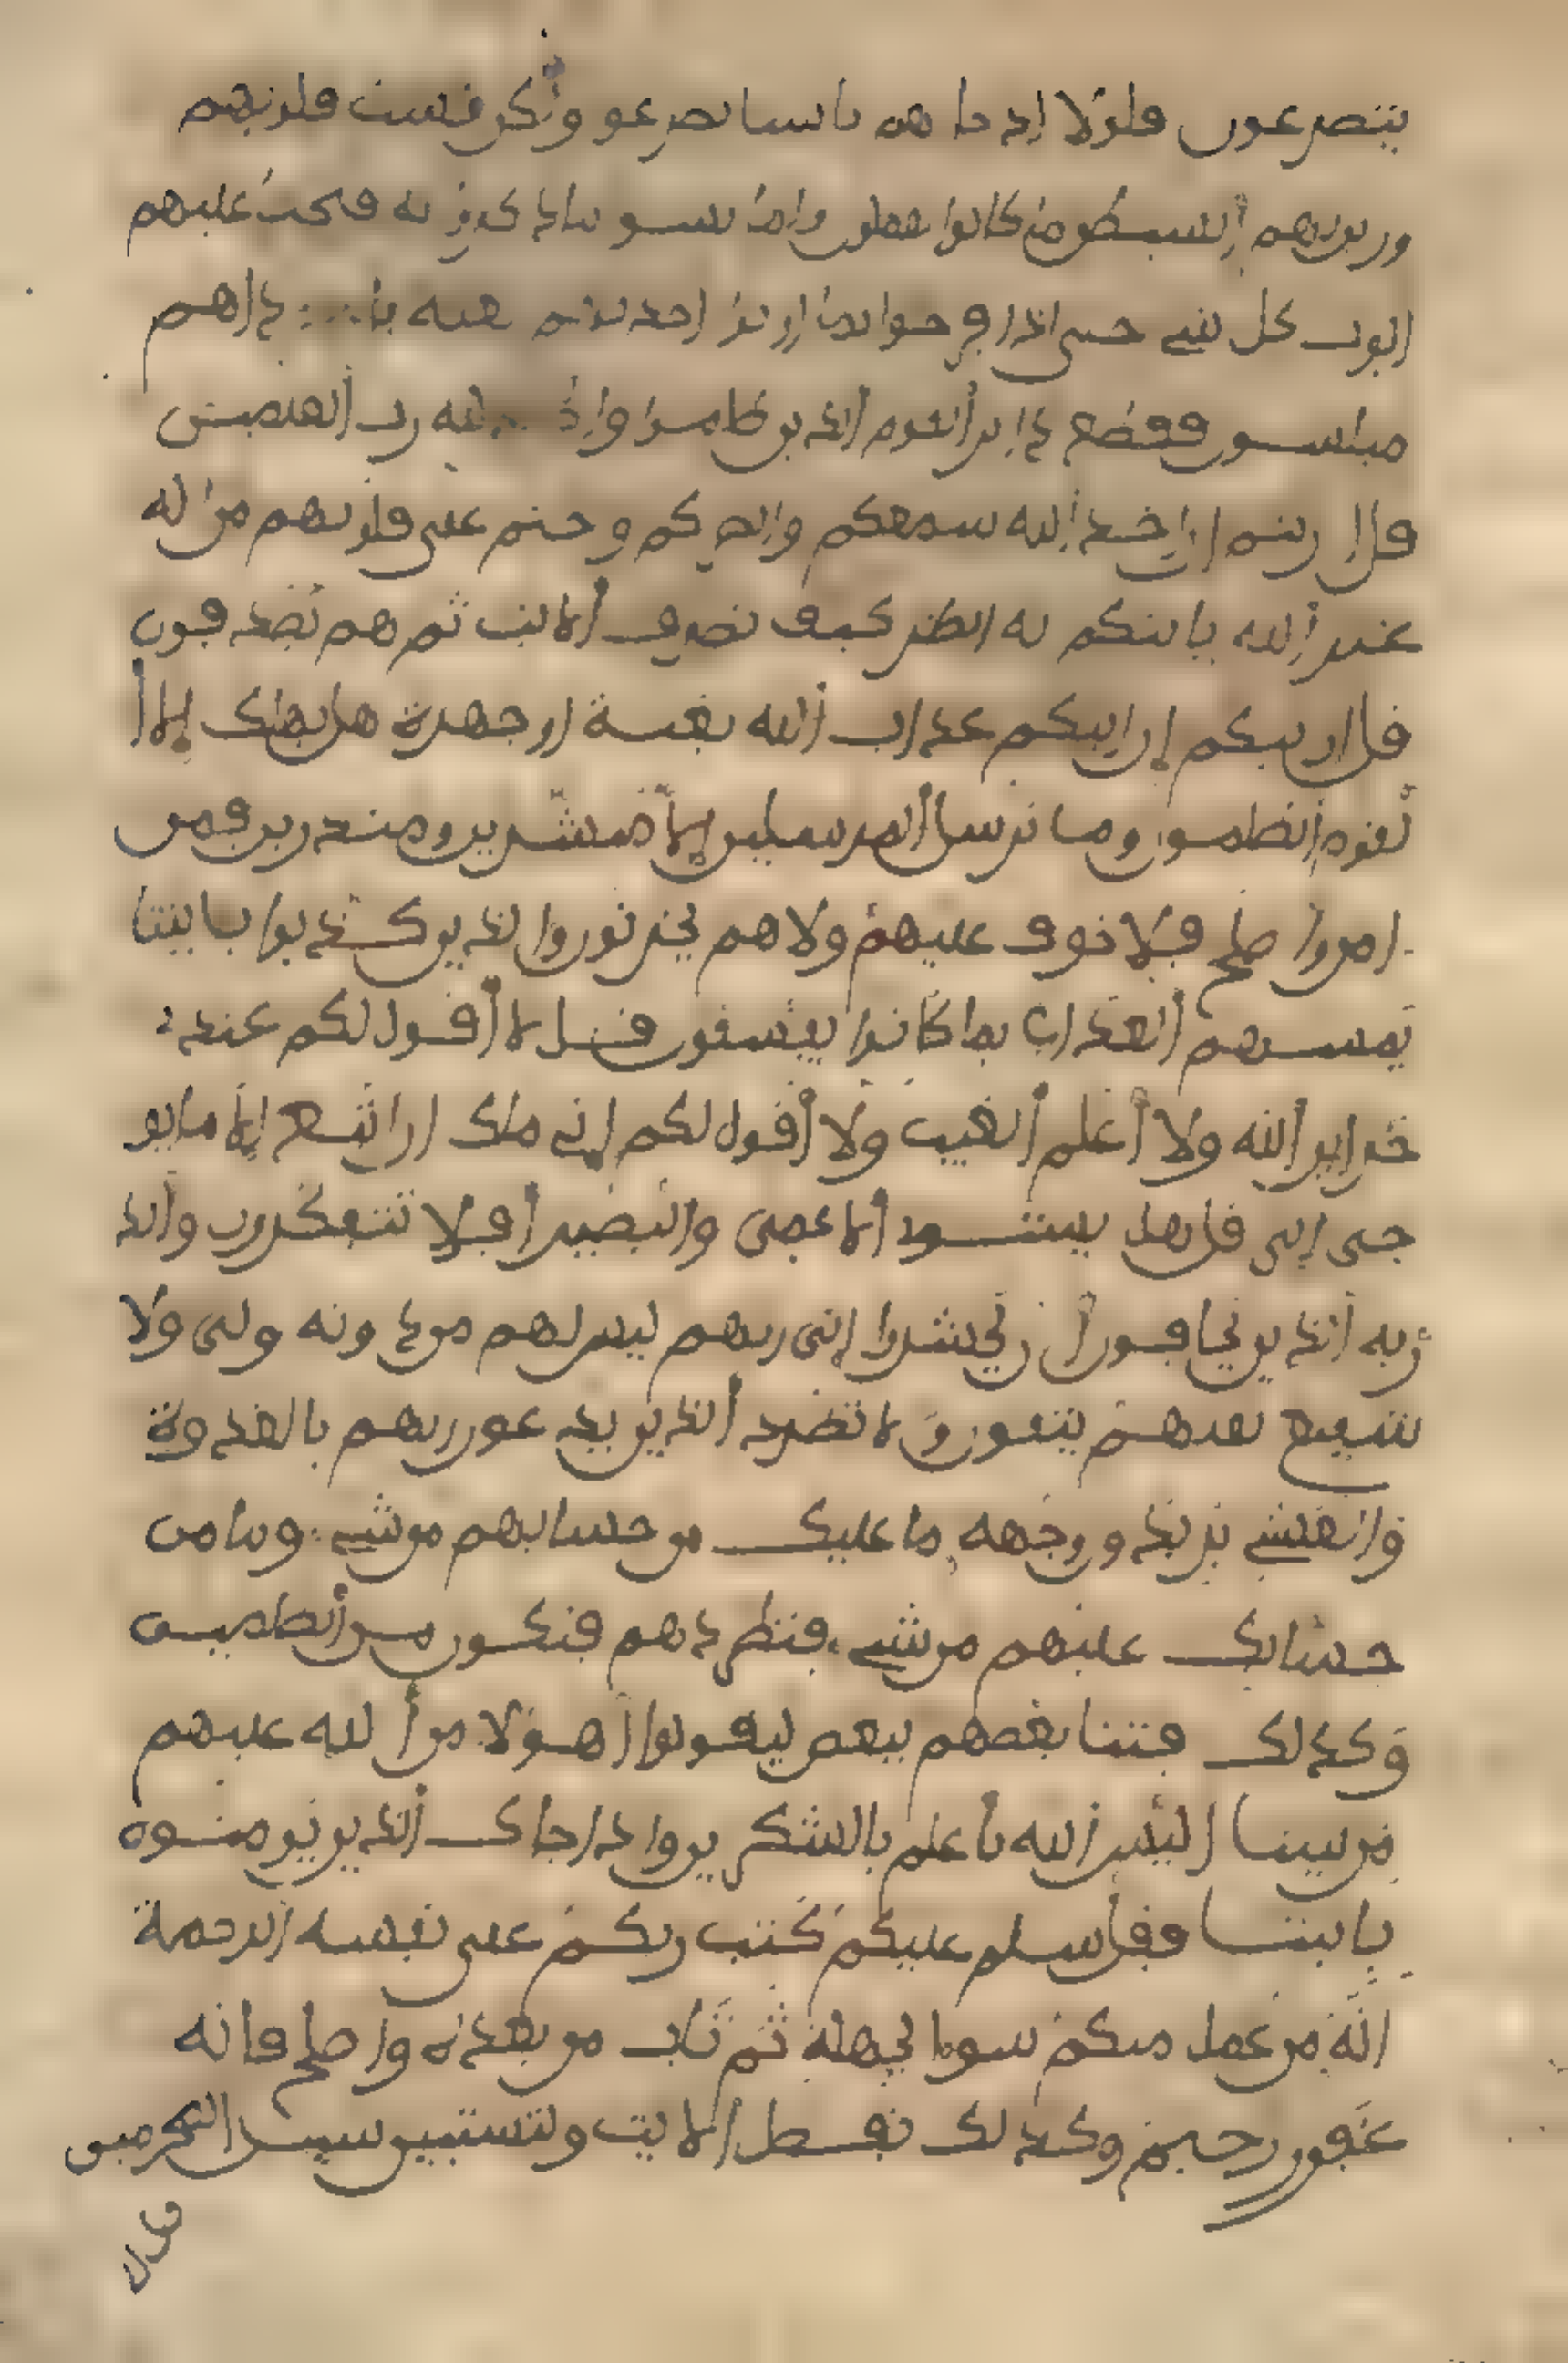 يتضرعون فلولا إذ جا هم بأسنا تضرعو ولكن قست قلوبهم
وزين لهم الشيطن ما كانوا يعملون فلما نسوا ما ذكروا به فتحنا عليهم
ابوب كل شيء حتى اذا فرحوا بما اوتوا اخذنهم بغتة فإذا هم
مبلسون فقطع دابر القوم الذين ظلموا والحمد لله رب العلمين
قل ارايتم ان اخذ الله سمعكم وابصركم وختم على قلوبكم من اله
غير الله ياتيكم به انظر كيف نصرف الايت ثم هم يصدفون
قل ارايتكم إن اتيكم عذاب الله بغتة او جهرة هل يهلك إلا
القوم الظلمون وما نرسل المرسلين إلا مبشرين ومنذرين فمن
امن واصلح فلا خوف عليهم ولا هم يحزنون والذين كذبوا بايتنا
يمسهم العذاب بما كانوا يفسقون قل لا أقول لكم عندي
خزاين الله ولا أعلم الغيب ولا أقول لكم إني ملك ان اتبع إلا ما يو
حى إلى قل هل يستوي الاعمى والبصير أفلا تتفكرون وأنذ
ر به الذين يخافون أن يحشروا إلى ربهم ليس لهم من دونه ولى ولا
شفيع لعلهم يتقون ولا تطرد الذين يدعون ربهم بالغدوة
والعشي يريدون وجهه ما عليك من حسابهم من شيء وما من
حسابك عليهم من شيء فتطردهم فتكون من الظلمين
وكذلك فتنا بعضهم ببعض ليقولوا أهؤلا من الله عليهم
من بيننا اليس الله بأعلم بالشكرين واذا جاك الذين يومنون
بايتنا فقل سلم عليكم كتب ربكم على نفسه الرحمة
انه من عمل منكم سوءا بجهلة ثم تاب من بعده واصلح فانه
غفور رحيم وكذلك نفصل الايت ولتستبين سبيل المجرمين
قل